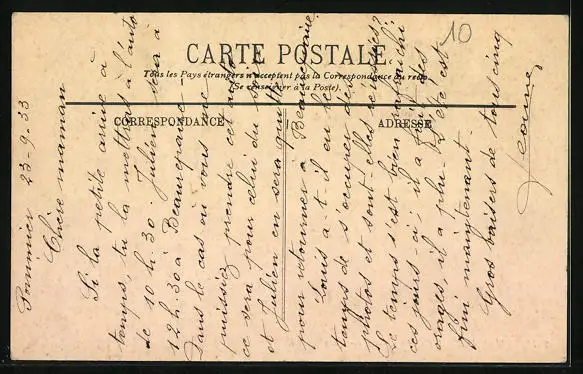 CARTE POSTALE
Tous les Pays étrangers n'acceptent pas la Correspondance au recto
(Se renseigner à la Poste).
CORRESPONDANCE
ADRESSE
10
Pommier 23-9-33
Chère maman
Si la petite arrive à
temps, tu la mettras à l'auto
de 10 h. 30. Julien sera à
12 h. 30 à Beaurepaire
Dans le cas où vous ne
puissiez prendre cet auto
ce sera pour celui du soir
et Julien en sera quitte
pour retourner à Beaurepaire.
Louis a-t-il eu le
temps de s'occuper des
photos et sont-elles réussies?
Le temps s'est bien rafraîchi
ces jours-ci; il a fait des
orages, il a plu. L'été est
fini maintenant.
Gros baisers de tous cinq